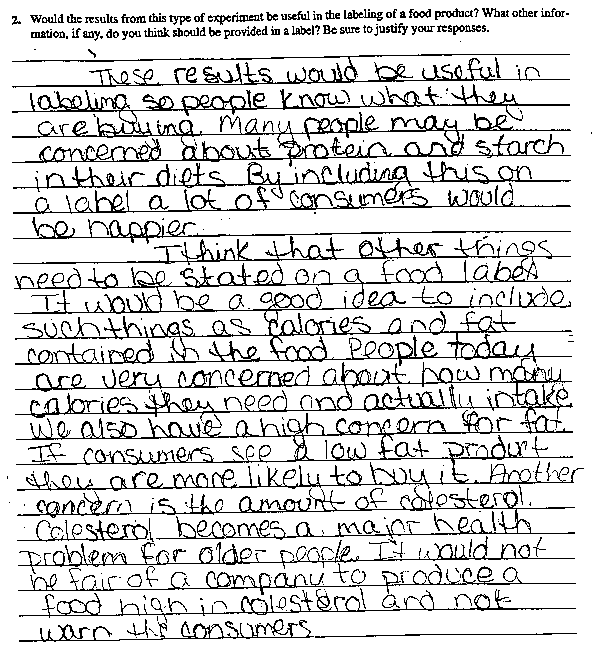 2. Would the results from this type of experiment be useful in the labeling of a food product? What other infor-
mation, if any, do you think should be provided in a label? Be sure to justify your responses.
These results would be useful in
labeling so people know what they
are buying. Many people may be
concerned about protein and starch
in their diets. By including this on
a label a lot of consumers would
be happier.
I think that other things
need to be stated on a food label.
It would be a good idea to include
such things as calories and fat
contained in the food. People today
are very concerned about how many
calories they need and actually intake.
We also have a high concern for fat.
If consumers see a low fat product
they are more likely to buy it. Another
concern is the amount of colesterol.
Colesterol becomes a major health
problem for older people. It would not
be fair of a company to produce a
food high in colesterol and not
warn the consumers.